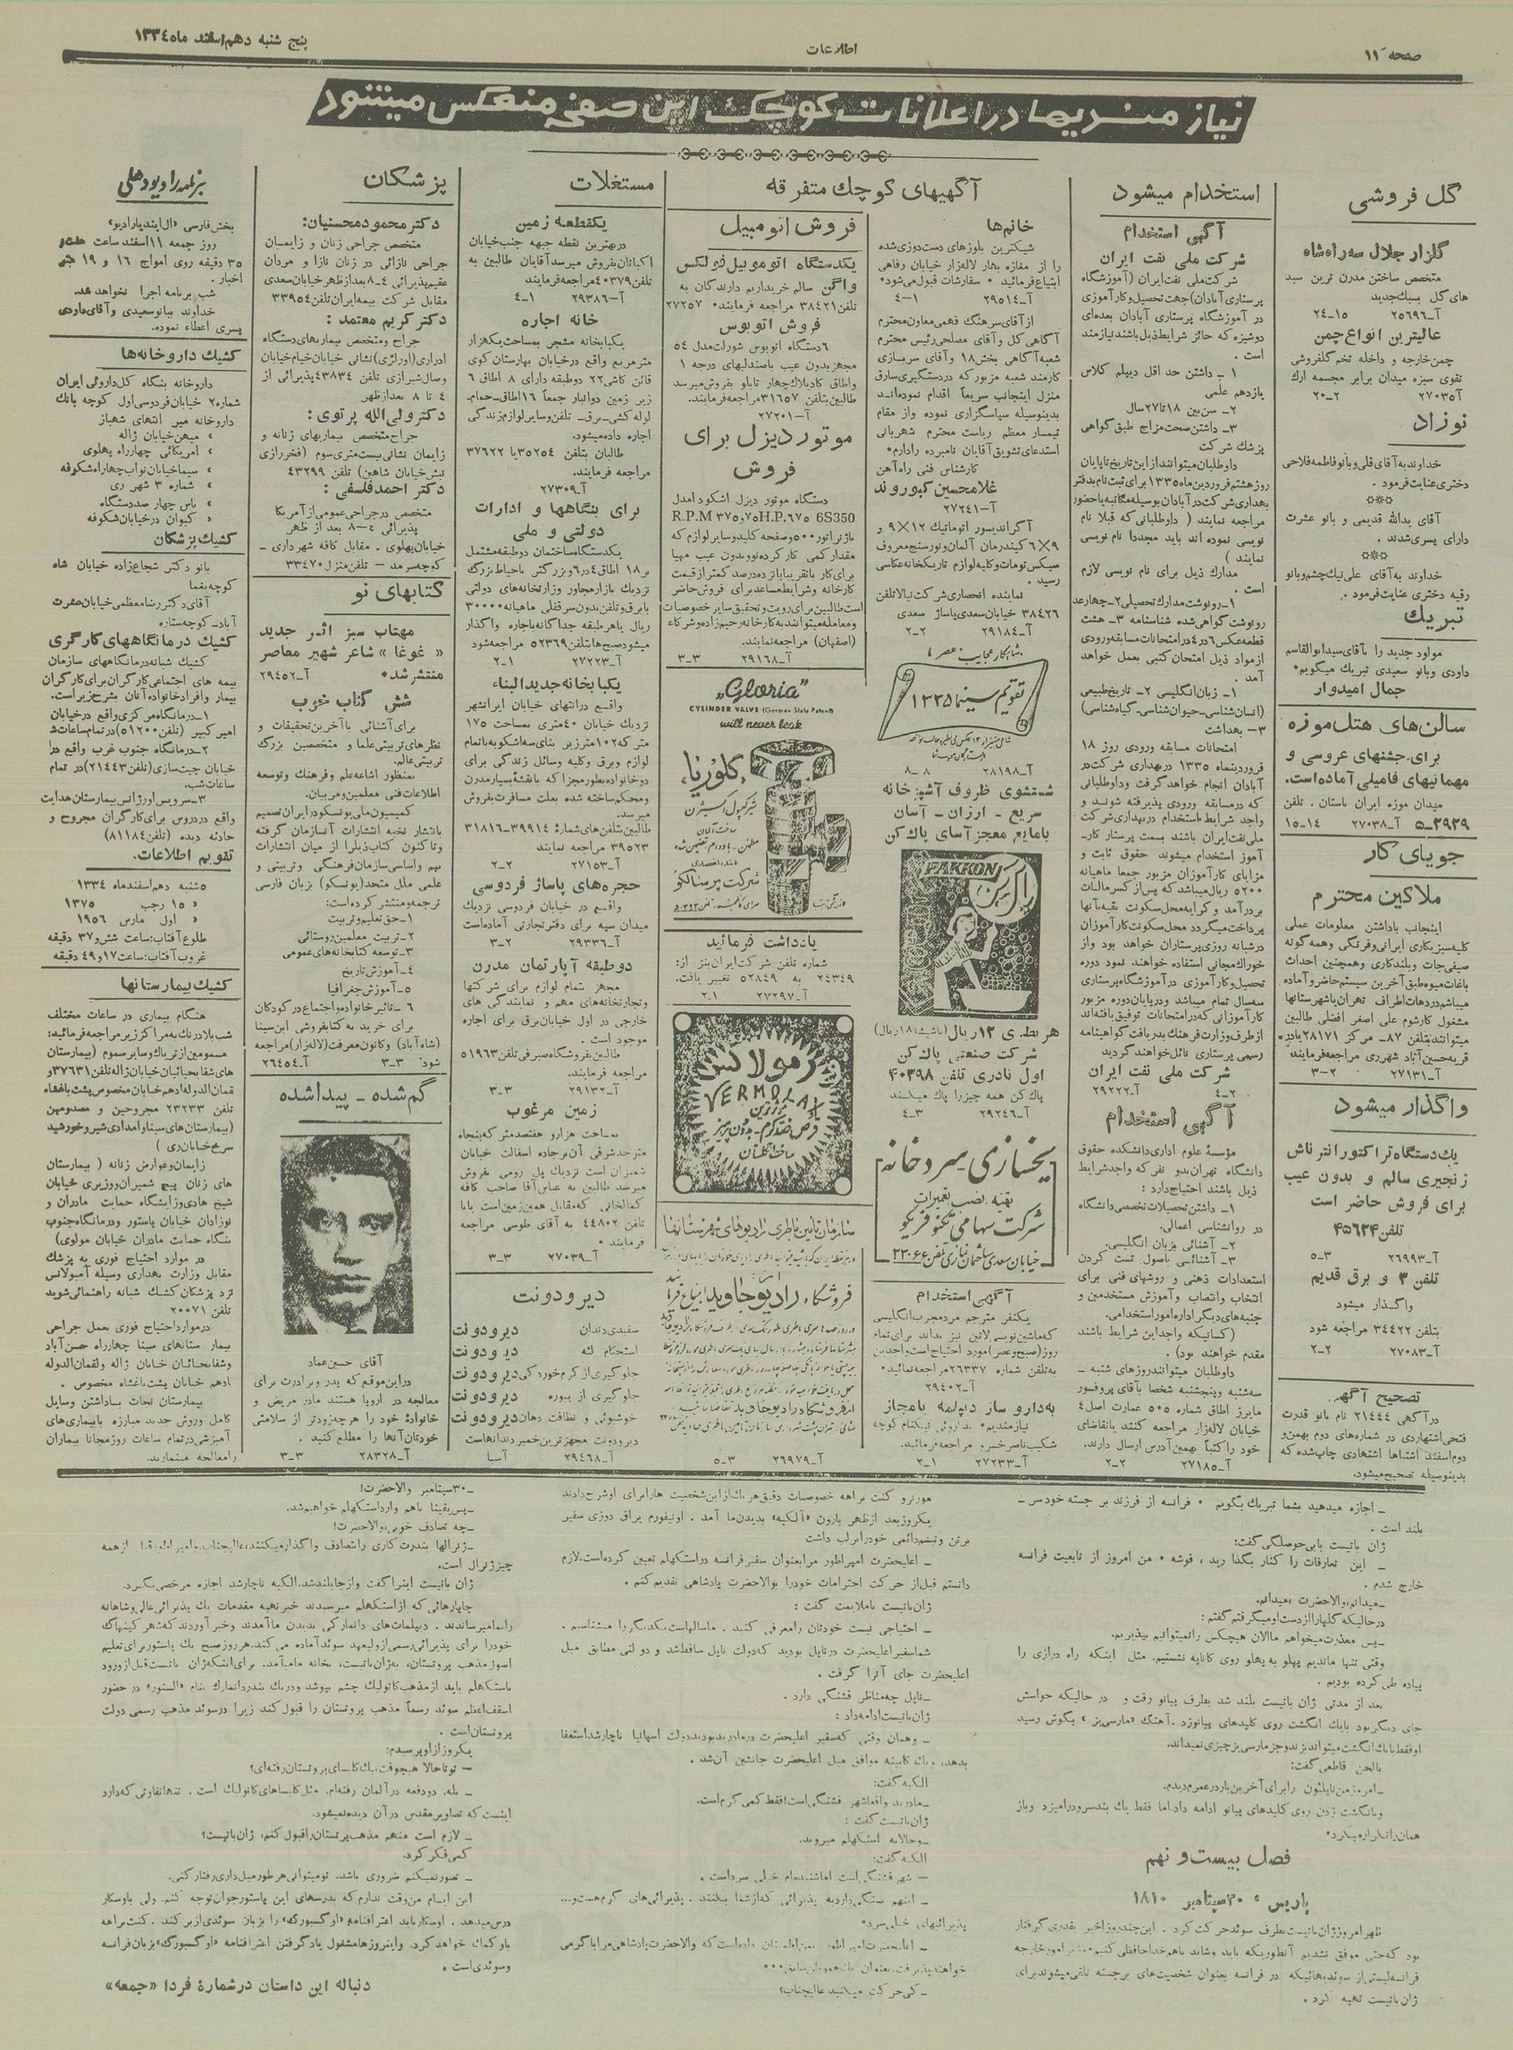 صفحه ۱۱
اطلاعات
پنج شنبه دهم اسفند ماه ۱۳۳۴
نیازمندیها در اعلانات کوچک این صفحه منعکس میشود
گل فروشی
گلزار جلال سه راه شاه
متخصص ساختن مدرن ترین سبد
های گل بسبک جدید
آ-۲۵۶۹۶ ۱۵-۲۴
عالیترین انواع چمن
چمن خارجه و داخله تخم گلفروشی
تقوی سبزه میدان برابر مجسمه ارک
آ۲۷۰۳۵ ۲-۲۰
نوزاد
خداوند به آقای قلی و بانو فاطمه فلاحی
دختری عنایت فرمود.
آقای یدالله قدیمی و بانو عشرت
دارای پسری شدند.
خداوند به آقای علی نیک چشم و بانو
رقیه دختری عنایت فرمود.
تبریک
مولود جدید را بآقای سیدابوالقاسم
داودی و بانو سعیدی تبریک میگویم
جمال امیدوار
سالن‌های هتل موزه
برای جشنهای عروسی و
مهمانیهای فامیلی آماده است.
میدان موزه ایران باستان . تلفن
۵-۲۹۲۹ آ-۲۷۰۳۸ ۱۴-۱۵
جویای کار
ملاکین محترم
اینجانب باداشتن معلومات عملی
کلیه سبزیکاری ایرانی و فرنگی و همه گونه
صیفی جات و بلندکاری و همچنین احداث
باغات میوه طبق آخرین سیستم حاضر و آماده
میباشم در دهات اطراف تهران یا شهرستانها
مشغول کار شوم علی اصغر افضلی طالبین
میتوانند بتلفن ۸۷- مرکز ۲۸۱۷۱ یا در
قریه حسین آباد شهر ری مراجعه فرمایند
آ-۲۷۱۳۱ ۲-۳
واگذار میشود
یک دستگاه تراکتور انتر ناش
زنجیری سالم و بدون عیب
برای فروش حاضر است
تلفن ۴۵۶۲۴
آ-۲۶۹۹۳ ۳-۵
تلفن ۳ و برق قدیم
واگذار میشود
بتلفن ۳۴۴۲۲ مراجعه شود
آ-۲۷۰۸۳ ۲-۲
تصحیح آگهی
در آگهی ۲۱۴۴۴ نام بانو قدرت
فتحی اشتهاردی در شماره‌های دوم بهمن و
دوم اسفند اشتباها اشتهادی چاپ شده که
بدینوسیله تصحیح میشود.
استخدام میشود
آگهی استخدام
شرکت ملی نفت ایران
شرکت ملی نفت ایران (آموزشگاه
پرستاری آبادان) جهت تحصیل و کارآموزی
در آموزشگاه پرستاری آبادان بعده‌ای
دوشیزه که حائز شرایط ذیل باشند نیازمند
است .
۱ - داشتن حد اقل دیپلم کلاس
یازدهم علمی
۲- سن بین ۱۸ تا ۲۷ سال
۳- داشتن صحت مزاج طبق گواهی
پزشک شرکت
داوطلبان میتوانند از این تاریخ تا پایان
روز هشتم فروردین ماه ۱۳۳۵ برای ثبت نام بدفتر
بهداری شرکت در آبادان بوسیله مکاتبه یا حضور
مراجعه نمایند ( داوطلبانی که قبلا نام
نویسی نموده اند باید مجددا نام نویسی
نمایند )
مدارک ذیل برای نام نویسی لازم
است .
۱- رونوشت مدارک تحصیلی ۲- چهار عدد
رونوشت گواهی شده شناسنامه ۳- هشت
قطعه عکس ۶ در ۴ در امتحانات مسابقه ورودی
از مواد ذیل امتحان کتبی بعمل خواهد
آمد .
۱- زبان انگلیسی ۲- تاریخ طبیعی
(انسان شناسی - حیوان شناسی - گیاه شناسی)
۳- بهداشت
امتحانات مسابقه ورودی روز ۱۸
فروردینماه ۱۳۳۵ در بهداری شرکت در
آبادان انجام خواهد گرفت و داوطلبانی
که در مسابقه ورودی پذیرفته شوند و
واجد شرایط استخدام در بهداری شرکت
ملی نفت ایران باشند بسمت پرستار کار-
آموز استخدام میشوند حقوق ثابت و
مزایای کارآموزان مزبور جمعا ماهیانه
۵۲۰۰ ریال میباشد که پس از کسر مالیات
بر درآمد و کرایه محل سکونت بقیه بآنها
پرداخت میگردد محل سکونت کارآموزان
در شبانه روزی پرستاران خواهد بود و از
خوراک مجانی استفاده خواهند نمود دوره
تحصیل و کارآموزی در آموزشگاه پرستاری
سه سال تمام میباشد و در پایان دوره مزبور
کارآموزانی که در امتحانات توفیق یافته‌اند
از طرف وزارت فرهنگ بدریافت گواهینامه
رسمی پرستاری نائل خواهند گردید
شرکت ملی نفت ایران
آ-۲۹۲۲۲ ۲-۴
آگهی استخدام
مؤسسهٔ علوم اداری دانشکده حقوق
دانشگاه تهران بدو نفر که واجد شرایط
ذیل باشند احتیاج دارد :
۱- داشتن تحصیلات تخصصی دانشگاه
در روانشناسی اعمالی.
۲- آشنائی بزبان انگلیسی.
۳- آشنائی باصول تست کردن
استعدادات ذهنی و روشهای فنی برای
انتخاب و انتصاب و آموزش مستخدمین و
جنبه‌های دیگر اداره امور استخدامی.
(کسانیکه واجد این شرایط باشند
مقدم خواهند بود) .
داوطلبان میتوانند روزهای شنبه -
سه شنبه و پنجشنبه شخصا بآقای پروفسور
مایرز اطاق شماره ۵۰۵ عمارت اصل ۴
خیابان لاله‌زار مراجعه کنند یا تقاضای
خود را کتباً بهمین آدرس ارسال دارند.
آ-۲۷۱۸۵ ۲-۲
آگهیهای کوچک متفرقه
خانم‌ها
شیکترین بلوزهای دست دوزی شده
را از مغازه بهار لاله‌زار خیابان رفاهی
ابتیاع فرمائید • سفارشات قبول میشود•
آ-۲۹۵۱۴ ۱-۴
از آقای سرهنگ فهمی معاون محترم
آگاهی کل و آقای مصلحی رئیس محترم
شعبه آگاهی بخش ۱۸ و آقای سربازی
کارمند شعبه مزبور که در دستگیری سارق
منزل اینجانب سریعاً اقدام نموده‌اند
بدینوسیله سپاسگزاری نموده و از مقام
تیمسار معظم ریاست محترم شهربانی
استدعای تشویق آقایان نامبرده را دارم•
کارشناس فنی راه آهن
غلامحسین کیوروند
آ-۲۷۲۴۱
آگراندیسور اتوماتیک ۱۲×۹ و
۹×۶ کیندرمان آلمان و نورسنج معروف
سیکس تومات و کلیه لوازم تاریکخانه عکاسی
رسید .
نماینده انحصاری شرکت نیالا تلفن
۳۸۴۲۶ خیابان سعدی پاساژ سعدی
آ-۲۹۱۸۴ ۲-۲
شاهکار عجایب عصر ما
تقویم سینما ۱۳۳۵
آ-۲۸۱۹۸ ۸-۸
شستشوی ظروف آشپزخانه
سریع - ارزان - آسان
بامایع معجز آسای پاک کن
PAKKON
پاک‌کن
هر بطری ۱۲ ریال
شرکت صنعتی پاک کن
اول نادری تلفن ۴۰۳۹۸
پاک کن همه چیز را پاک میکند
آ-۲۹۲۴۶ ۳-۴
یخسازی سردخانه
تهیه نصب تعمیرات
شرکت سهامی تکنو فریکو
خیابان سعدی ساختمان نیازی تلفن ۲۳۰۶۶
آگهی استخدام
یکنفر مترجم مرد مجرب انگلیسی
که ماشین نویسی لاتین نیز بداند برای تمام
روز (صبح و عصر) مورد احتیاج است واجدین
به تلفن شماره ۲۶۳۳۷ مراجعه نمائید.
آ-۲۹۴۰۲
به دارو ساز دیپلمه یا مجاز
نیازمندیم• بداروئی نیکنام کوچه
شکیب ناصرخسرو مراجعه فرمائید.
آ-۲۷۲۳۳ ۱-۲
فروش اتومبیل
یکدستگاه اتوموبیل فولکس
واگن سالم خریداریم دارندگان به
تلفن ۳۸۴۲۱ مراجعه فرمایند• ۲۷۲۵۷
فروش اتوبوس
۶ دستگاه اتوبوس شورلت مدل ۵۴
مجهز بدون عیب با صندلیهای درجه ۱
و اطاق کادیلاک چهار تابلو بفروش میرسد
طالبین بتلفن ۳۱۶۵۷ مراجعه فرمایند.
آ-۲۷۲۰۱
موتور دیزل برای
فروش
دستگاه موتور دیزل اشکودا مدل
6S350 ۶۷۵ H.P. ۳۷۵ R.P.M
با ژنراتور ۵۰۰ و صفحه کلید و سایر لوازم که
مقدار کمی کار کرده نو و بدون عیب مهیا
برای کار با تقریبا پانزده درصد کمتر از قیمت
کارخانه و شرایط مساعد برای فروش حاضر
است طالبین برای رویت و تحقیق سایر خصوصیات
و معامله میتوانند به کارخانه رحیم زاده و شرکاء
(اصفهان) مراجعه نمایند.
آ-۲۹۱۶۸ ۳-۳
"Gloria"
CYLINDER VALVE (German State Patent)
will never leak
گلوریا
شیر کپسول اکسیژن
ساخت آلمان
شرکت پرسنالکو
یادداشت فرمائید
شماره تلفن شرکت ایران بنز از:
۲۴۳۴۹ به ۵۲۸۴۹ تغییر یافت.
آ-۲۷۲۹۷ ۱-۲
رمولاکس
VERMOLAX
ساخت انگلستان
سازمان تأمین باطری رادیوهای شهرستانها
فروشگاه رادیو جاوید
آ-۲۶۹۷۹ ۳-۵
مستغلات
یکقطعه زمین
در بهترین نقطه جبهه جنب خیابان
اکباتان بفروش میرسد آقایان طالبین به
تلفن ۴۰۳۷۹ مراجعه فرمایند
آ-۲۹۳۸۶ ۱-۴
خانه اجاره
یکبابخانه مشجر بمساحت یکهزار
متر مربع واقع در خیابان بهارستان کوی
قائن کاشی ۲۲ دو طبقه دارای ۸ اطاق ۶
زیر زمین دو انبار جمعاً ۱۶ اطاق - حمام
لوله کشی - برق - تلفن و سایر لوازم زندگی
اجاره داده میشود.
طالبان بتلفن ۳۵۲۵۴ یا ۳۷۶۲۲
مراجعه فرمایند.
آ-۲۷۳۰۹
برای بنگاهها و ادارات
دولتی و ملی
یکدستگاه ساختمان دوطبقه مشتمل
بر ۱۸ اطاق ۴ در ۶ و بزرگتر با حیاط بزرگ
نزدیک بازار مجاور وزارتخانه‌های دولتی
با برق و تلفن بدون سرقفلی ماهیانه ۳۰۰۰۰
ریال یا هر طبقه جداگانه باجاره واگذار
میشود صبح‌ها بتلفن ۵۲۳۶۹ مراجعه شود
آ-۲۷۲۲۳ ۱-۲
یکبابخانه جدید البناء
واقع در انتهای خیابان ایرانشهر
نزدیک خیابان ۴۰ متری بمساحت ۱۷۵
متر که ۱۰۲ متر زیر بنای سه اشکوبه با تمام
لوازم و برق و کلیه وسائل زندگی برای
دو خانواده بطور مجزا که با نقشهٔ بسیار مدرن
و محکم ساخته شده بعلت مسافرت بفروش
میرسد.
طالبین بتلفن‌های شمارهٔ ۳۹۹۱۴-۳۱۸۱۶
۳۹۵۲۳ مراجعه نمایند
آ-۲۷۱۵۳ ۲-۲
حجره‌های پاساژ فردوسی
واقع در خیابان فردوسی نزدیک
میدان سپه برای دفتر تجارتی آماده است
آ-۲۹۳۳۶ ۲-۳
دوطبقه آپارتمان مدرن
مجهز تمام لوازم برای شرکتها
وتجارتخانه‌های مهم و نمایندگی های
خارجی در اول خیابان برق برای اجاره
موجود است .
طالبین بفروشگاه صیرفی تلفن ۵۱۹۶۳
مراجعه فرمایند.
آ-۲۹۱۳۲ ۳-۳
زمین مرغوب
بمساحت هزار و هفتصد متر که پنجاه
متر حد شرقی آن بر جاده اسفالت خیابان
شمیران است نزدیک پل رومی بفروش
میرسد طالبین به عباس آقا صاحب کافه
کمالخانی که مقابل همین زمین است یا با
تلفن ۴۴۸۰۲ به آقای طوسی مراجعه
فرمایند .
آ-۲۷۰۳۹ ۳-۳
دیرودونت
سفیدی دندان دیرودونت
استحکام لثه دیرودونت
جلوگیری از کرم خوردگی دیرودونت
جلوگیری از پیوره دیرودونت
خوشبوئی و نظافت دهان دیرودونت
دیرودونت مجهزترین خمیر دندانهاست
آ-۲۹۴۶۸ آسیا
پزشکان
دکتر محمود محسنیان:
متخصص جراحی زنان و زایمان
جراحی نازائی در زنان نازا و مردان
عقیم پذیرائی ۴-۸ بعد از ظهر خیابان سعدی
مقابل شرکت بیمه ایران تلفن ۳۳۹۵۴
دکتر کریم معتمد :
جراح و متخصص بیماریهای دستگاه
ادراری (اورلژی) نشانی خیابان خیام خیابان
وصال شیرازی تلفن ۴۳۸۳۴ پذیرائی از
۴ تا ۸ بعد از ظهر
دکتر ولی الله پرتوی :
جراح متخصص بیماریهای زنانه و
زایمان نشانی بیست متری سوم (فخر رازی
نبش خیابان شاهین) تلفن ۴۳۲۹۹
دکتر احمد فلسفی :
متخصص در جراحی عمومی از آمریکا
پذیرائی ۴-۸ بعد از ظهر
خیابان پهلوی . مقابل کافه شهرداری -
کوچه سرمد - تلفن منزل ۳۳۴۷۰
کتابهای نو
مهتاب سبز اثر جدید
« غوغا » شاعر شهیر معاصر
منتشر شد• آ-۲۹۴۵۲
شش کتاب خوب
برای آشنائی با آخرین تحقیقات و
نظرهای تربیتی علما و متخصصین بزرگ
تربیتی عالم.
بمنظور اشاعه علم و فرهنگ و توسعه
اطلاعات فنی معلمین و مربیان.
کمیسیون ملی یونسکو در ایران تصمیم
بانتشار نخبه انتشارات آنسازمان گرفته
و تاکنون کتاب ذیل را از میان انتشارات
مهم و اساسی سازمان فرهنگی و تربیتی و
علمی ملل متحد (یونسکو) بزبان فارسی
ترجمه و منتشر کرده است:
۱- حق تعلیم و تربیت
۲- تربیت معلمین روستائی
۳- توسعه کتابخانه‌های عمومی
۴- آموزش تاریخ
۵- آموزش جغرافیا
۶- تاثیر خانواده و اجتماع در کودکان
برای خرید به کتابفروشی ابن سینا
(شاه آباد) و کانون معرفت (لاله‌زار) مراجعه
شود ۳-۳ آ-۲۶۴۵۴
گم شده - پیدا شده
آقای حسین عماد
در این موقع که پدر و برادرت برای
معالجه در اروپا هستند مادر مریض و
خانوادهٔ خود را هرچه زودتر از سلامتی
خودتان آنها را مطلع کنید .
آ-۲۸۳۲۸ ۳-۳
برنامه رادیو دهلی
بخش فارسی «ال ایندیا رادیو»
روز جمعه ۱۱ اسفند ساعت
۳۵ دقیقه روی امواج ۱۶ و ۱۹ متر
اخبار .
شب برنامه اجرا نخواهد شد.
خداوند ببانو سعیدی و آقای ماردی
پسری اعطاء نموده.
کشیک داروخانه‌ها
داروخانه بنگاه کل داروئی ایران
شماره ۲ خیابان فردوسی اول کوچه بانک
داروخانه میر انتهای شهباز
» میهن خیابان ژاله
» آمریکائی چهارراه پهلوی
» سیما خیابان نواب چهارراه شکوفه
» شماره ۳ شهر ری
» یاس چهار صد دستگاه
» کیوان در خیابان شکوفه
کشیک پزشکان
بانو دکتر شجاع زاده خیابان شاه
کوچه یغما
آقای دکتر رضا معظمی خیابان عشرت
آباد - کوچه ستاره
کشیک درمانگاههای کارگری
کشیک شبانه درمانگاههای سازمان
بیمه های اجتماعی کارگران برای کارگران
بیمار و افراد خانواده آنان بشرح زیر است.
۱- درمانگاه مرکزی واقع در خیابان
امیرکبیر (تلفن ۵۱۲۰۰) در تمام ساعات شب
۲- درمانگاه جنوب غرب واقع در
خیابان چیت سازی (تلفن ۲۱۴۴۳) در تمام
ساعات شب.
۳- سرویس اورژانس بیمارستان هدایت
واقع در دروس برای کارگران مجروح و
حادثه دیده (تلفن ۸۱۱۸۴)
تقویم اطلاعات.
۵شنبه دهم اسفند ماه ۱۳۳۴
» ۱۵ رجب ۱۳۷۵
» اول مارس ۱۹۵۶
طلوع آفتاب: ساعت شش و ۳۷ دقیقه
غروب آفتاب: ساعت ۱۷ و ۴۹ دقیقه
کشیک بیمارستانها
هنگام بیماری در ساعات مختلف
شب بلادرنگ به مراکز زیر مراجعه فرمائید:
مسمومین از تریاک و سایر سموم (بیمارستان
های شفا یحیائیان خیابان ژاله تلفن ۳۷۶۳۱ و
لقمان الدوله ادهم خیابان مخصوص پشت باغشاه
تلفن ۲۳۲۳۳ مجروحین و مصدومین
(بیمارستان های سینا و امدادی شیر و خورشید
سرخ خیابان ری )
زایمان و عوارض زنانه ( بیمارستان
های زنان پیچ شمیران و وزیری خیابان
شیخ هادی و زایشگاه حمایت مادران و
نوزادان خیابان پاستور و درمانگاه جنوب
بنگاه حمایت مادران خیابان مولوی)
در موارد احتیاج فوری به پزشک
مقابل وزارت بهداری وسیله آمبولانس
نزد پزشکان کشیک شبانه راهنمائی شوید
تلفن ۲۰۰۷۱
در موارد احتیاج فوری بعمل جراحی
بیمارستانهای سینا چهارراه حسن آباد
و شفا یحیائیان خیابان ژاله و لقمان الدوله
ادهم خیابان پشت باغشاه مخصوص .
بیمارستان نجات با داشتن وسایل
کامل و روش جدید مبارزه با بیماری‌های
آمیزشی در تمام ساعات روز مجانا بیماران
را معالجه مینماید.
- اجازه میدهید بشما تبریک بگویم • فرانسه از فرزند بر جسته خود سر -
بلند است .
ژان باتیست بابی حوصلگی گفت:
- این تعارفات را کنار بگذارید ، فوشه • من امروز از تابعیت فرانسه
خارج شدم .
- میدانم، والاحضرت، میدانم.
در حالیکه گلها را از دست او میگرفتم گفتم :
- پس معذرت میخواهم ما الان هیچکس را نمیتوانیم بپذیریم.
وقتی تنها ماندیم پهلو به پهلو روی کاناپه نشستیم. مثل اینکه راه درازی را
پیاده طی کرده بودیم .
بعد از مدتی ژان باتیست بلند شد بطرف پیانو رفت و در حالیکه حواسش
جای دیگر بود با یک انگشت روی کلیدهای پیانو زد . آهنگ «مارسی یز» بگوش رسید
او فقط با یک انگشت میتواند بزند و جز مارسی یز چیزی نمیداند.
با لحن قاطعی گفت:
- امروز من ناپلئون را برای آخرین بار در عمرم دیدم.
و با نگشت زدن روی کلیدهای پیانو ادامه داد. اما فقط یک بند سرود را میزد و باز
همان را تکرار میکرد•
فصل بیست و نهم
پاریس ، ۳۰ سپتامبر ۱۸۱۰
ظهر امروز ژان باتیست بطرف سوئد حرکت کرد . این چند روز اخیر بقدری گرفتار
بود که حتی موفق نشدیم آنطوریکه باید و شاید باهم خداحافظی کنیم
ژان باتیست تهیه کرد .
مورنرو کنت براهه خصوصیات دقیق هر یک از این شخصیت‌ها را برای او شرح دادند
یکروز بعد از ظهر بارون «آلکیه» بدیدن ما آمد . اونیفورم یراق دوزی سفیر
برتن و تبسم دائمی خود را بر لب داشت
- اعلیحضرت امپراطور مرا بعنوان سفیر فرانسه در استکهلم تعیین کرده است. لازم
دانستم قبل از حرکت احترامات خود را بوالاحضرت پادشاهی تقدیم کنم .
ژان باتیست با ملایمت گفت :
- احتیاجی نیست خودتان را معرفی کنید . ما سالهاست یکدیگر را میشناسیم .
شما سفیر اعلیحضرت در ناپل بودید که دولت ناپل ساقط شد و دولتی مطابق میل
اعلیحضرت جای آنرا گرفت .
- ناپل چه مناظر قشنگی دارد .
ژان باتیست ادامه داد :
- و همان وقتی که سفیر اعلیحضرت در مادرید بودید دولت اسپانیا ناچار شد استعفا
بدهد. و یک کابینه موافق میل اعلیحضرت جانشین آن شد .
الکیه گفت:
- مادرید واقعاً شهر قشنگی است! فقط کمی گرم است.
ژان باتیست گفت :
- و حالا به استکهلم میروید.
الکیه گفت:
- شهر قشنگی است اما شنیده‌ام خیلی سرد است .
- اینهم بستگی دارد به پذیرائی که از شما بکنند . پذیرائی‌های گرم هست و...
پذیرائیهای خیلی سرد•
- کی حرکت میکنید عالیجناب؟
- ۳۰ سپتامبر والاحضرت!
- پس یقینا باهم وارد استکهلم خواهیم شد.
- چه تصادف خوبی، والاحضرت!
چیز ژنرال است.
ژان باتیست اینرا گفت و از جا بلند شد. الکیه ناچار شد اجازه مرخصی بگیرد.
چاپارهائی که از استکهلم میرسیدند خبر تهیه مقدمات یک پذیرائی عالی و شاهانه
را بما میرساندند . دیپلمات های دانمارکی بدیدن ما آمدند و خبر آوردند که شهر کپنهاگ
خود را برای پذیرائی رسمی از ولیعهد سوئد آماده می کند. هر روز صبح یک پاستور برای تعلیم
اصول مذهب پروتستان، به ژان باتیست، بخانه ما میآمد.
پروتستان است .
یکروز از او پرسیدم:
- تو تا حالا هیچوقت، بیک کلیسای پروتستان رفته‌ای؟
- بله. دو دفعه در آلمان رفته‌ام. مثل کلیساهای کاتولیک است . تنها تفاوتی که دارد
اینست که تصاویر مقدس در آن دیده نمیشود.
- لازم است منهم مذهب پرتستان را قبول کنم، ژان باتیست؟
کمی فکر کرد.
- تصور نمیکنم ضروری باشد. تو میتوانی هرطور میل داری رفتار کنی.
و سوئدی است •
دنباله این داستان در شمارهٔ فردا «جمعه»